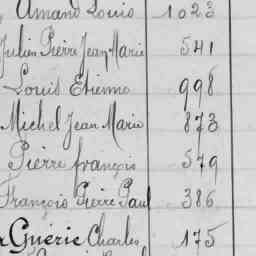 Amand Louis 1023
Julien Pierre Jean Marie 541
Louis Etienne 998
Michel Jean Marie 873
Pierre françois 579
François Pierre Paul 386
Guéric Charles 175